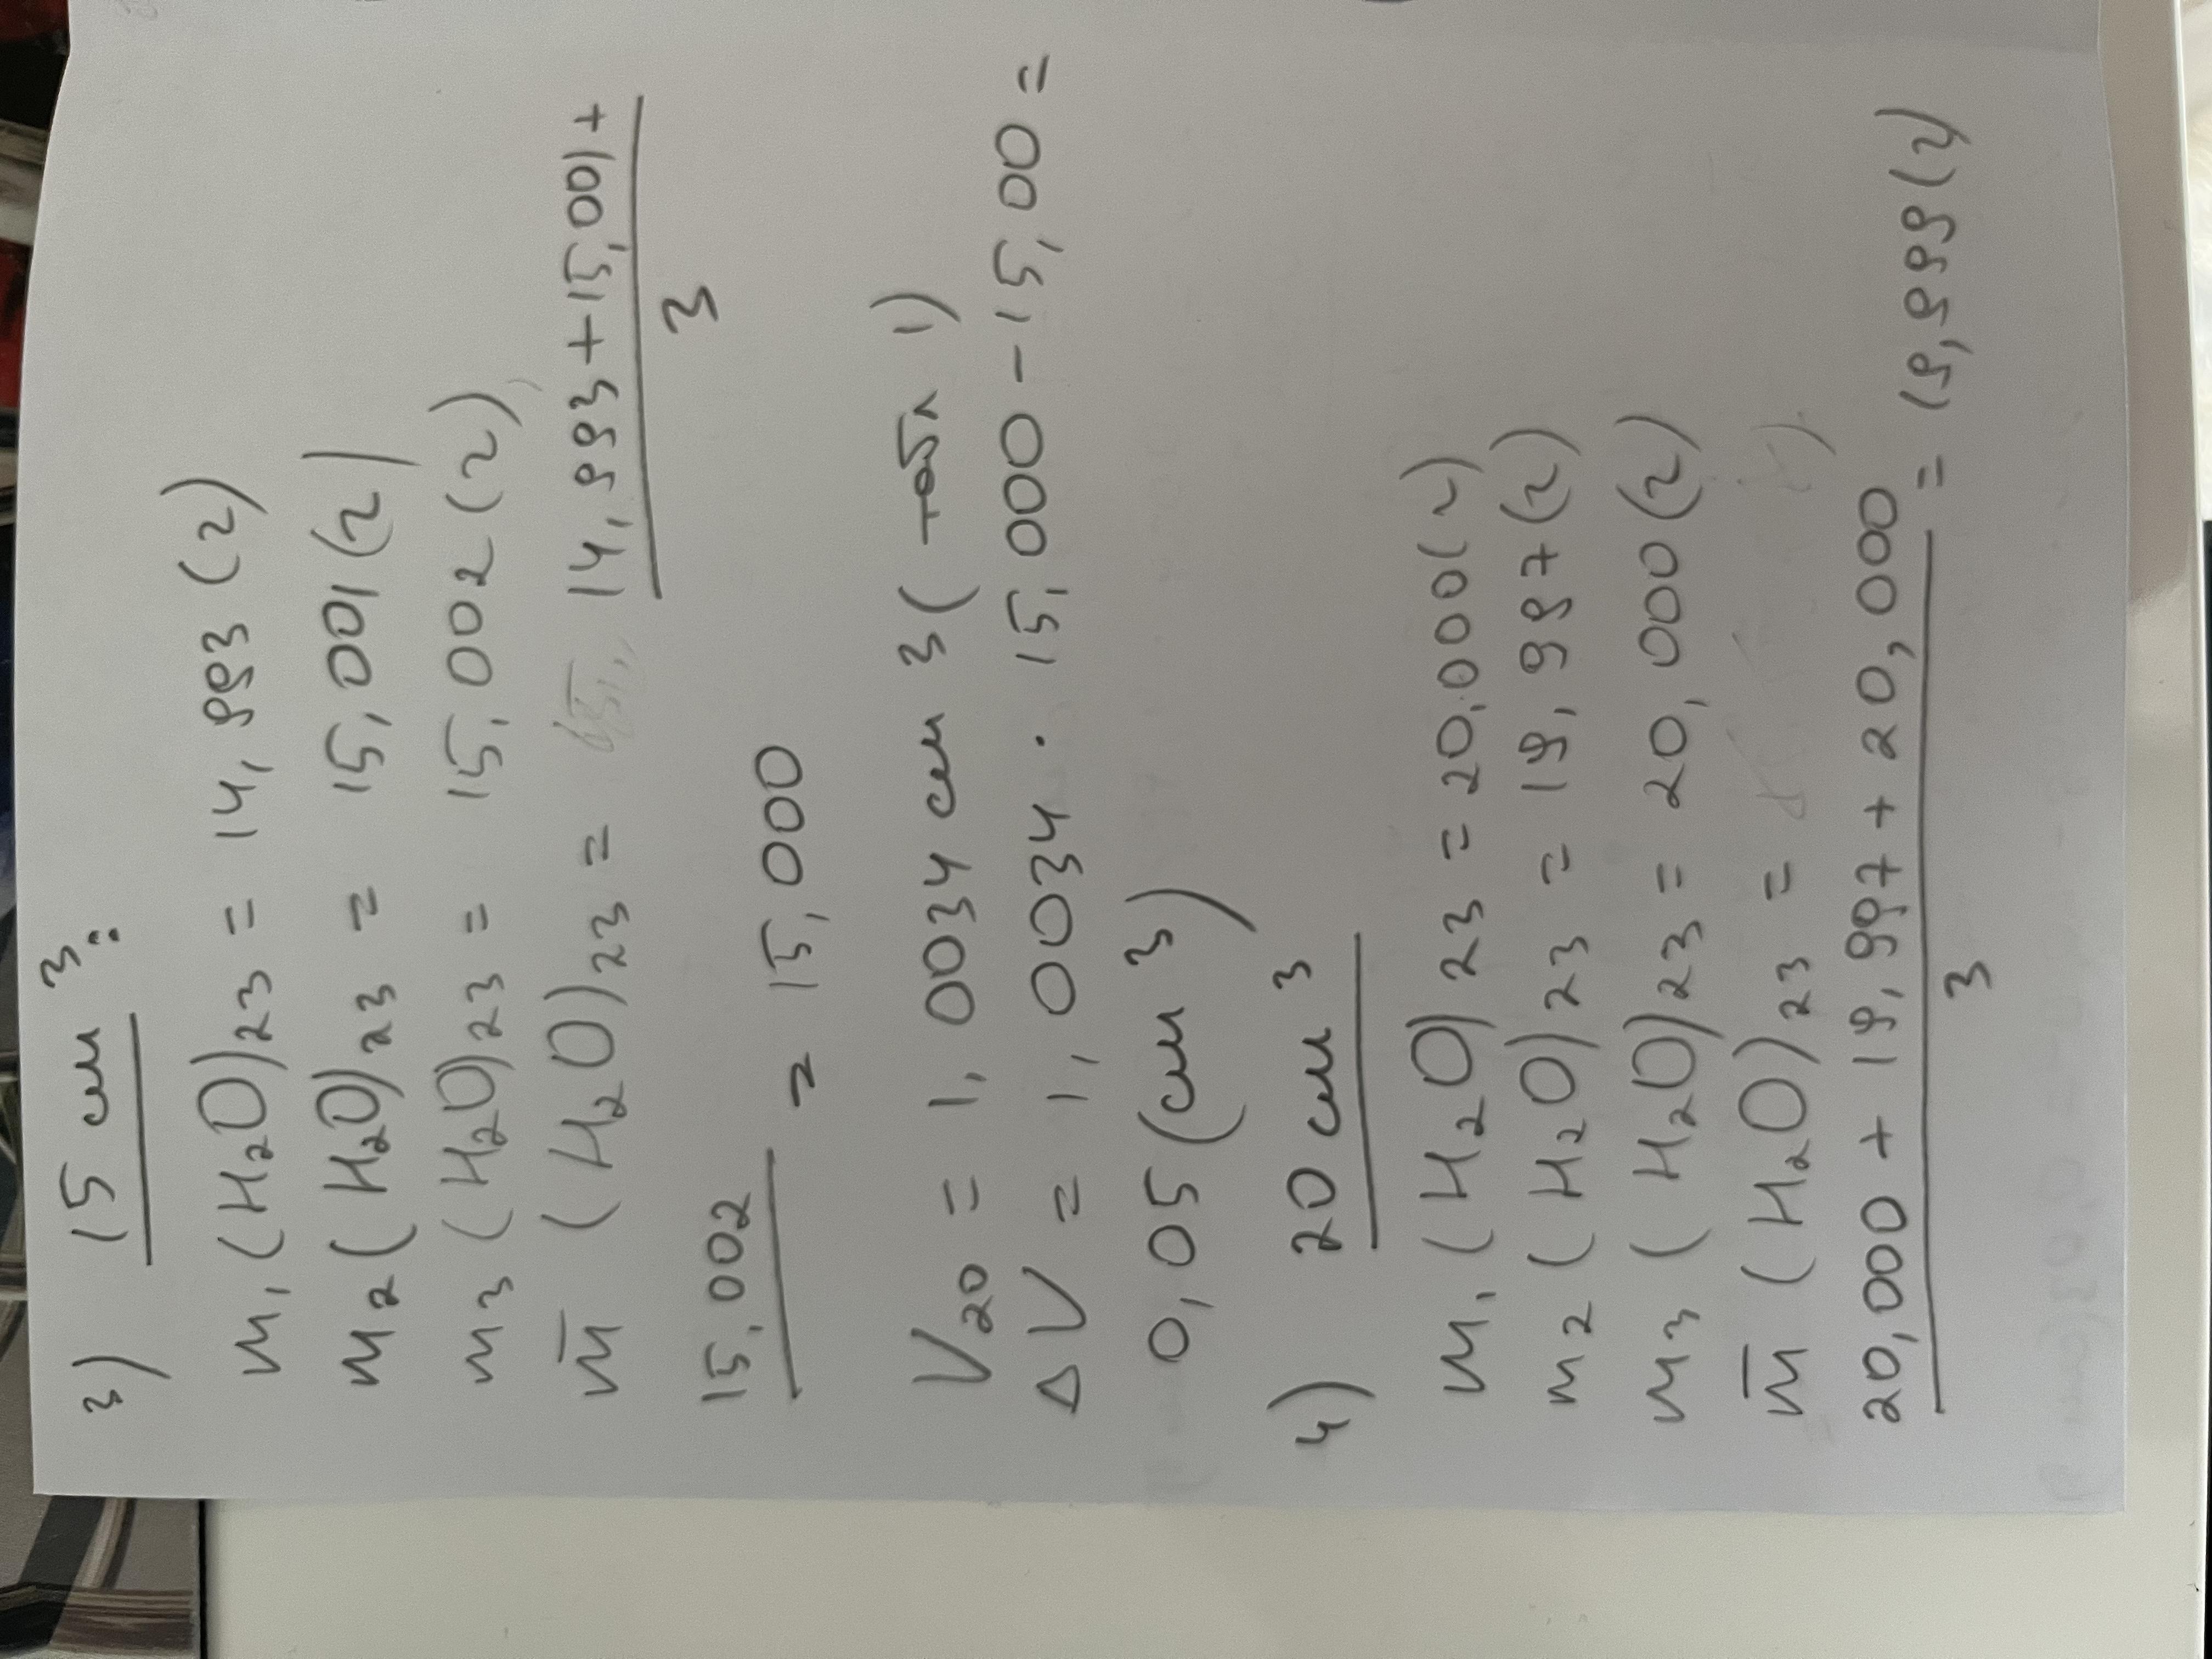 3) 15 см³:
m₁(H₂O)₂₃ = 14,993 (г)
m₂(H₂O)₂₃ = 15,001 (г)
m₃(H₂O)₂₃ = 15,002 (г)
m̅ (H₂O)₂₃ = 14,993+15,001+
3
15,002 = 15,000
V₂₀ = 1,0034 см 3 (табл 1)
ΔV = 1,0034 · 15,000 - 15,00 =
0,05 (см³)
4) 20 см³
m₁(H₂O)₂₃ = 20,000(г)
m₂(H₂O)₂₃ = 19,997(г)
m₃(H₂O)₂₃ = 20,000(г)
m̅ (H₂O)₂₃ =
20,000 + 19,997 + 20,000 = 19,999(г)
3